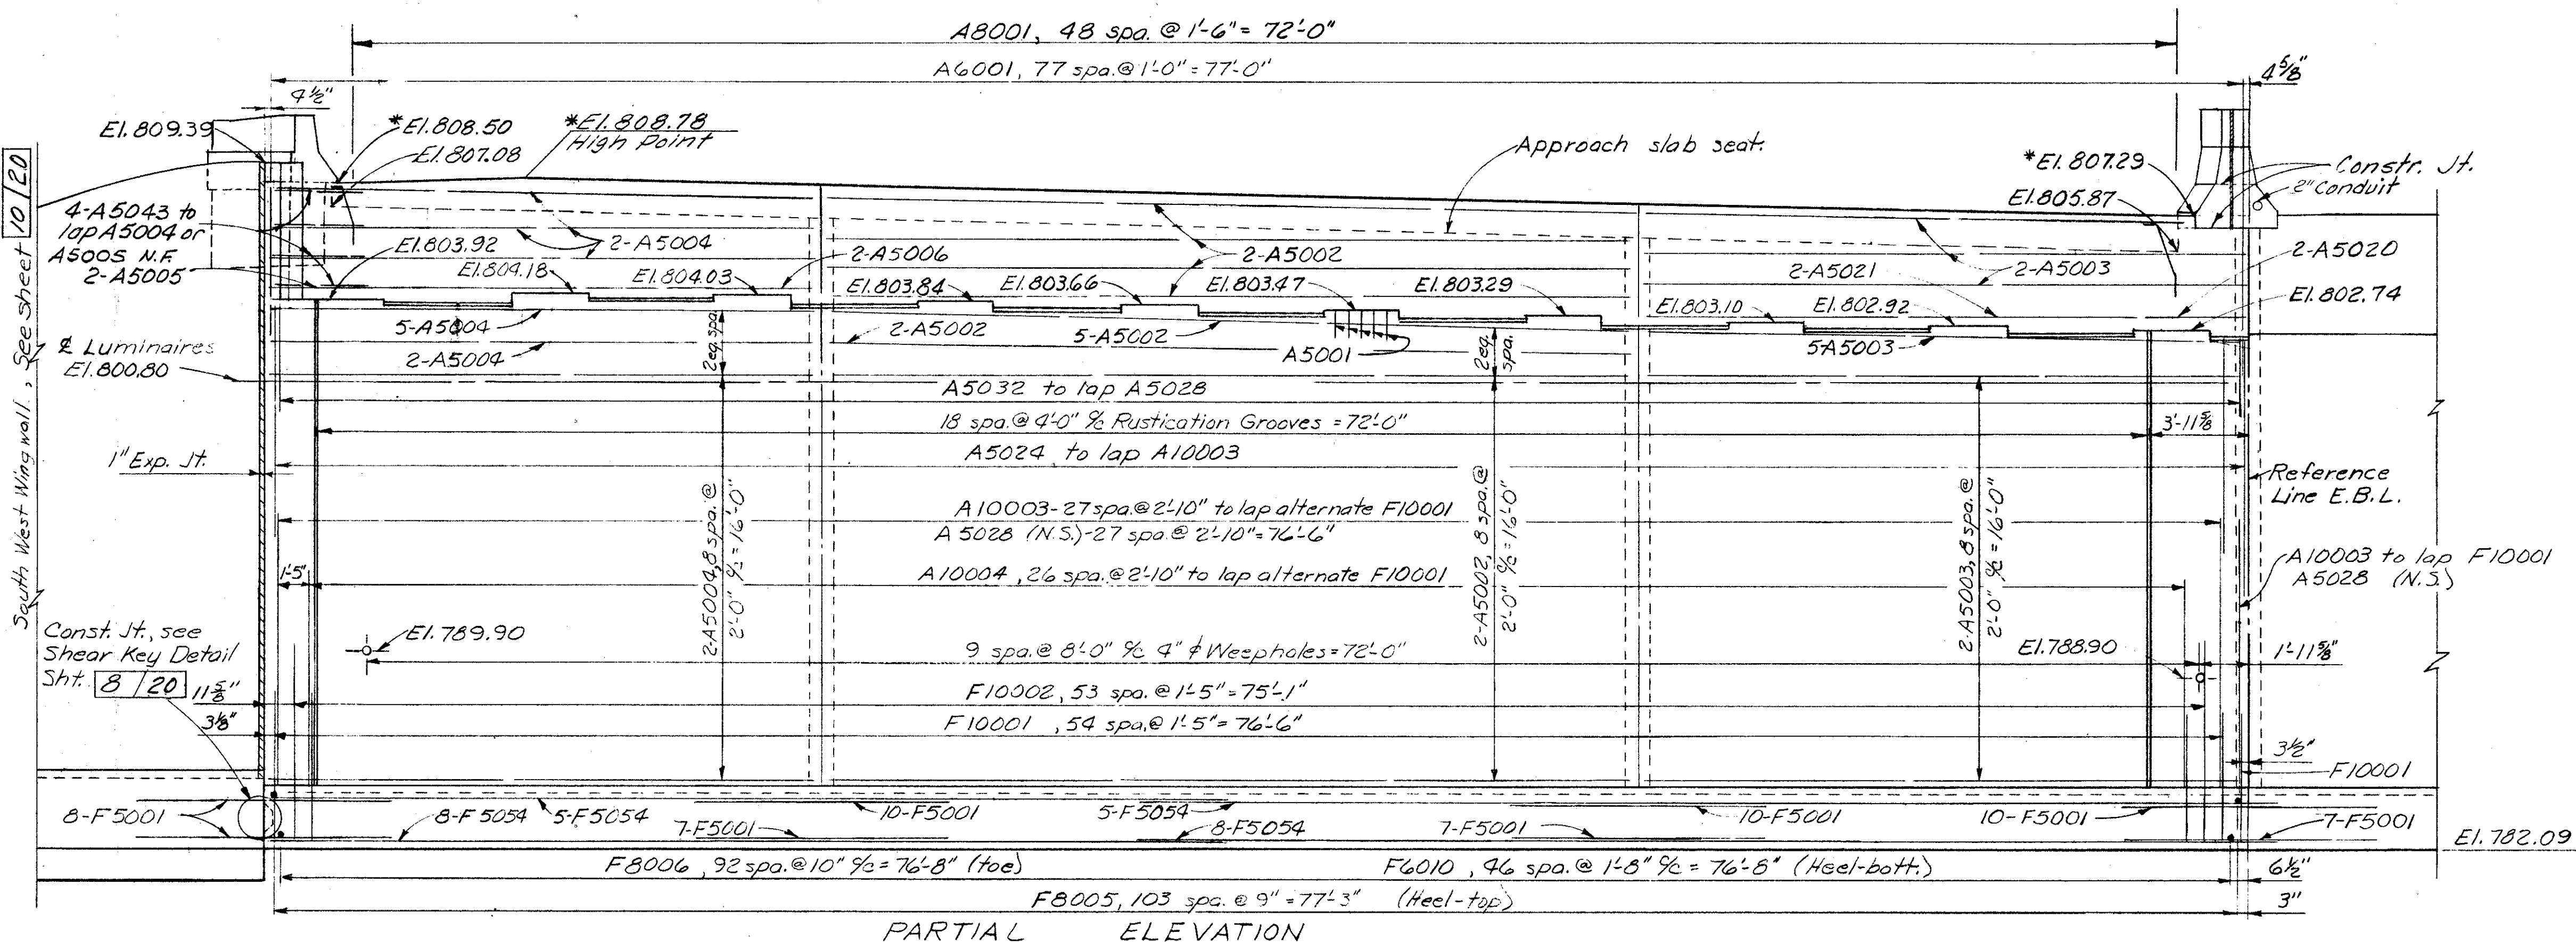 A8001, 48 spa. @ 1'-6" = 72'-0"
A6001, 77 spa. @ 1'-0" = 77'-0"
4 5/8"
4½"
El. 809.39
*El. 808.50
El. 807.08
*El. 808.78
High Point
Approach slab seat.
*El. 807.29
El. 805.87
Constr. Jt.
2" Conduit
South West Wingwall, See sheet 10/20
4-A5043 to
lap A5004 or
A5005 N.F.
2-A5005
El. 803.92
2-A5004
El. 804.18
El. 804.03
2-A5006
El. 803.84
El. 803.66
2-A5002
El. 803.47
El. 803.29
2-A5021
2-A5003
2-A5020
El. 803.10
El. 802.92
El. 802.74
5-A5004
2-A5004
2 eq. spa.
2-A5002
5-A5002
A5001
2 eq.
spa.
5A5003
℄ Luminaires
El. 800.80
A5032 to lap A5028
18 spa. @ 4'-0" c/c Rustication Grooves = 72'-0"
3'-11 5/8"
A5024 to lap A10003
1" Exp. Jt.
Reference
Line E.B.L.
2-A5004, 8 spa. @
2'-0" c/c = 16'-0"
2-A5002, 8 spa. @
2'-0" c/c = 16'-0"
2-A5003, 8 spa. @
2'-0" c/c = 16'-0"
A10003-27 spa. @ 2'-10" to lap alternate F10001
A5028 (N.S.)-27 spa. @ 2'-10" = 76'-6"
1'-5"
A10004, 26 spa. @ 2'-10" to lap alternate F10001
A10003 to lap F10001
A5028 (N.S.)
Const. Jt., see
Shear Key Detail
Sht. 8/20
El. 789.90
9 spa. @ 8'-0" c/c 4" ϕ Weepholes = 72'-0"
El. 788.90
1'-11 5/8"
11 5/8"
F10002, 53 spa. @ 1'-5" = 75'-1"
3 1/8"
F10001, 54 spa. @ 1'-5" = 76'-6"
3½"
F10001
8-F5001
8-F5054
5-F5054
7-F5001
10-F5001
5-F5054
8-F5054
7-F5001
10-F5001
10-F5001
7-F5001
El. 782.09
F8006, 92 spa. @ 10" c/c = 76'-8" (toe)
F6010, 46 spa. @ 1'-8" c/c = 76'-8" (Heel-bott.)
6½"
F8005, 103 spa. @ 9" = 77'-3" (Heel-top)
3"
PARTIAL ELEVATION